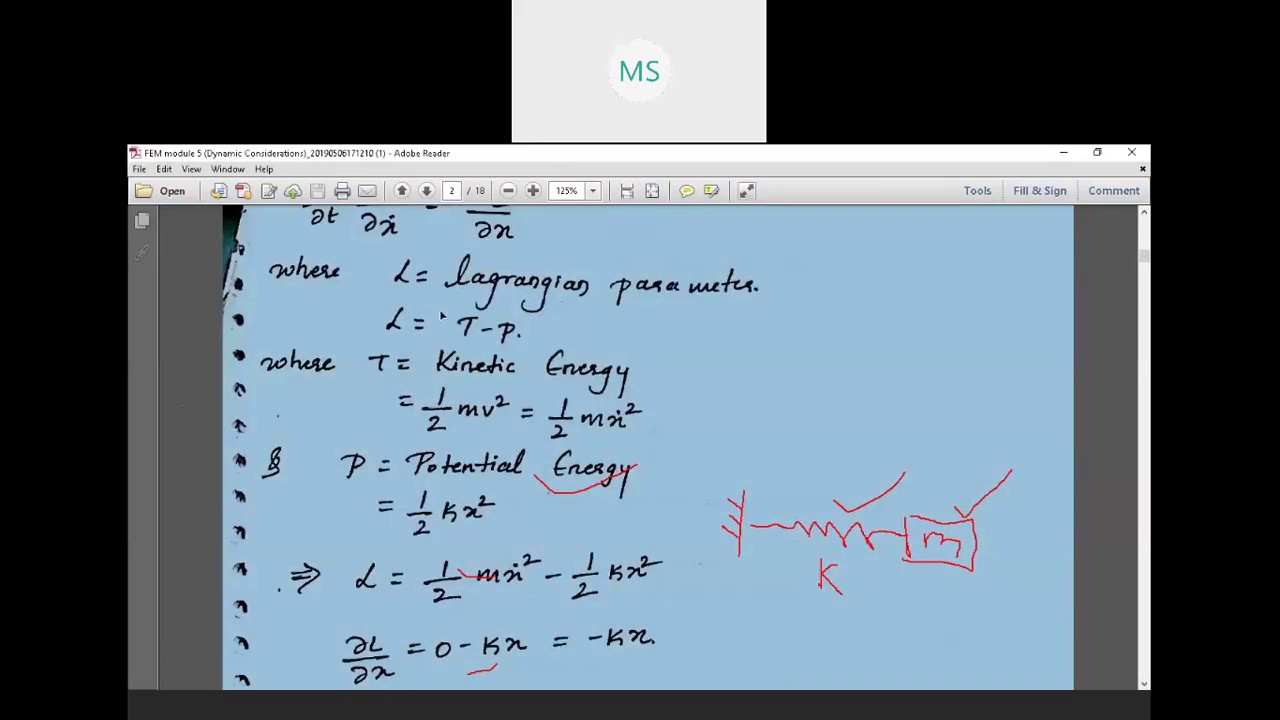 MS
FEM module 5 (Dynamic Considerations)_20190506171210 (1) - Adobe Reader
File Edit View Window Help
Open 2 / 18 125% Tools Fill & Sign Comment
∂t ∂ẋ ∂x
where L = lagrangian parameter.
L = T-P.
where T = Kinetic Energy
= 1/2 mv² = 1/2 mẋ²
§ P = Potential Energy
= 1/2 Kx²
m
K
⇒ L = 1/2 mẋ² - 1/2 Kx²
∂L/∂x = 0 - Kx = -Kx.